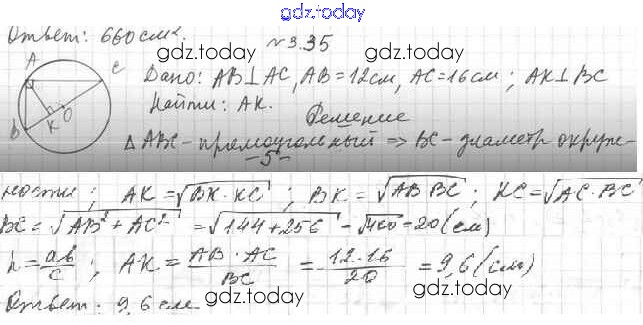 gdz.today
Ответ: 660 см².
gdz.today
№ 3.35
gdz.today
A
C
B
K
O
Дано: AB⊥AC, AB=12см, AC=16см; AK⊥BC
Найти: AK.
Решение
△ ABC - прямоугольный => BC - диаметр окруж-
-5-
ности; AK = √BK·KC ; BK = √AB·BC ; KC = √AC·BC
BC = √AB²+AC² = √144+256 = √400 = 20 (см)
h = ab/c ; AK = AB·AC/BC = 12·16/20 = 9,6 (см)
gdz.today
gdz.today
Ответ: 9,6 см
gdz.today
gdz.today